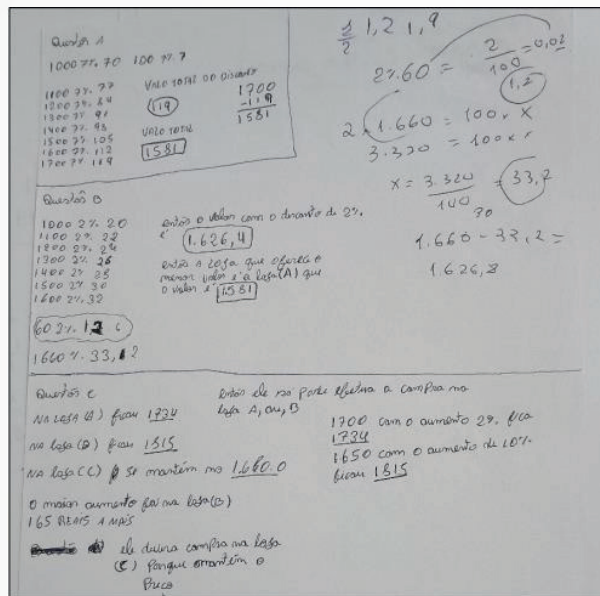 Questão A
1000 7%. 70 100 7%. 7
1100 7%. 77
1200 7%. 84
1300 7% 91
1400 7%. 98
1500 7% 105
1600 7%. 112
1700 7% 119
Valo total do disconto
119
Valo total
1581
1700
-119
1581
1,2 1,9
2%.60 = 2/100 = 0,02
1,2
2 . 1.660 = 100 . x
3.320 = 100 x
x = 3.320/100 = 33,2
30
1.660 - 33,2 =
1.626,8
Questão B
1000 2%. 20
1100 2%. 22
1200 2%. 24
1300 2% 26
1400 2% 28
1500 2% 30
1600 2%. 32
60 2%. 1,2
1660 %. 33,2
então o valor com o disconto de 2%.
é 1.626,4
então a loja que oferece o
menor valor é a loja (A) que
o valor é 1581
Questão C
na loja (A) ficou 1734
na loja (B) ficou 1815
na loja (C) se mantém no 1.660.0
o maior aumento foi na loja (B)
165 reais a mais
ele devera compra na loja
(C) porque mantém o
preço
então ele no pode efetua a compra na
loja A, ou, B
1700 com o aumento 2%. fica
1734
1650 com o aumento de 10%.
ficou 1815